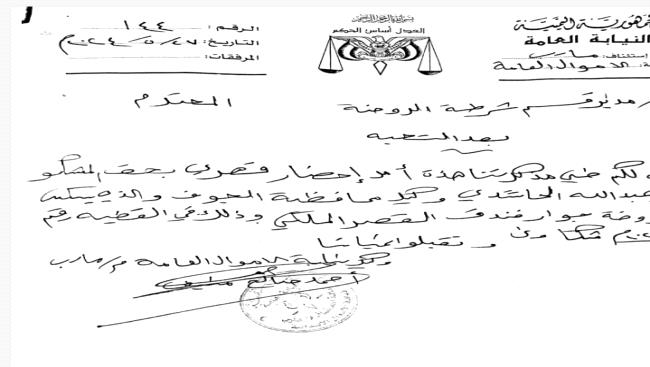 جمهورية اليمنية
النيابة العامة
استئناف: مأرب
الاموال العامة
بسم الله الرحمن الرحيم
العدل أساس الحكم
الرقم: ١٤٤
التاريخ: ٢٧/٥/٢٠٢٤م
المرفقات:
مدير قسم شرطة الروضة المحترم
بعد التحية
لكم طي مذكرتنا هذه أمر إحضار قهري بحق المشكو
عبدالله الحاشدي وكيل محافظة الجوف والذي يسكن
روضة جوار فندق القصر الملكي وذلك في القضية رقم
وتقبلوا
وكيل نيابة الاموال العامة م/مارب
أحمد صالح